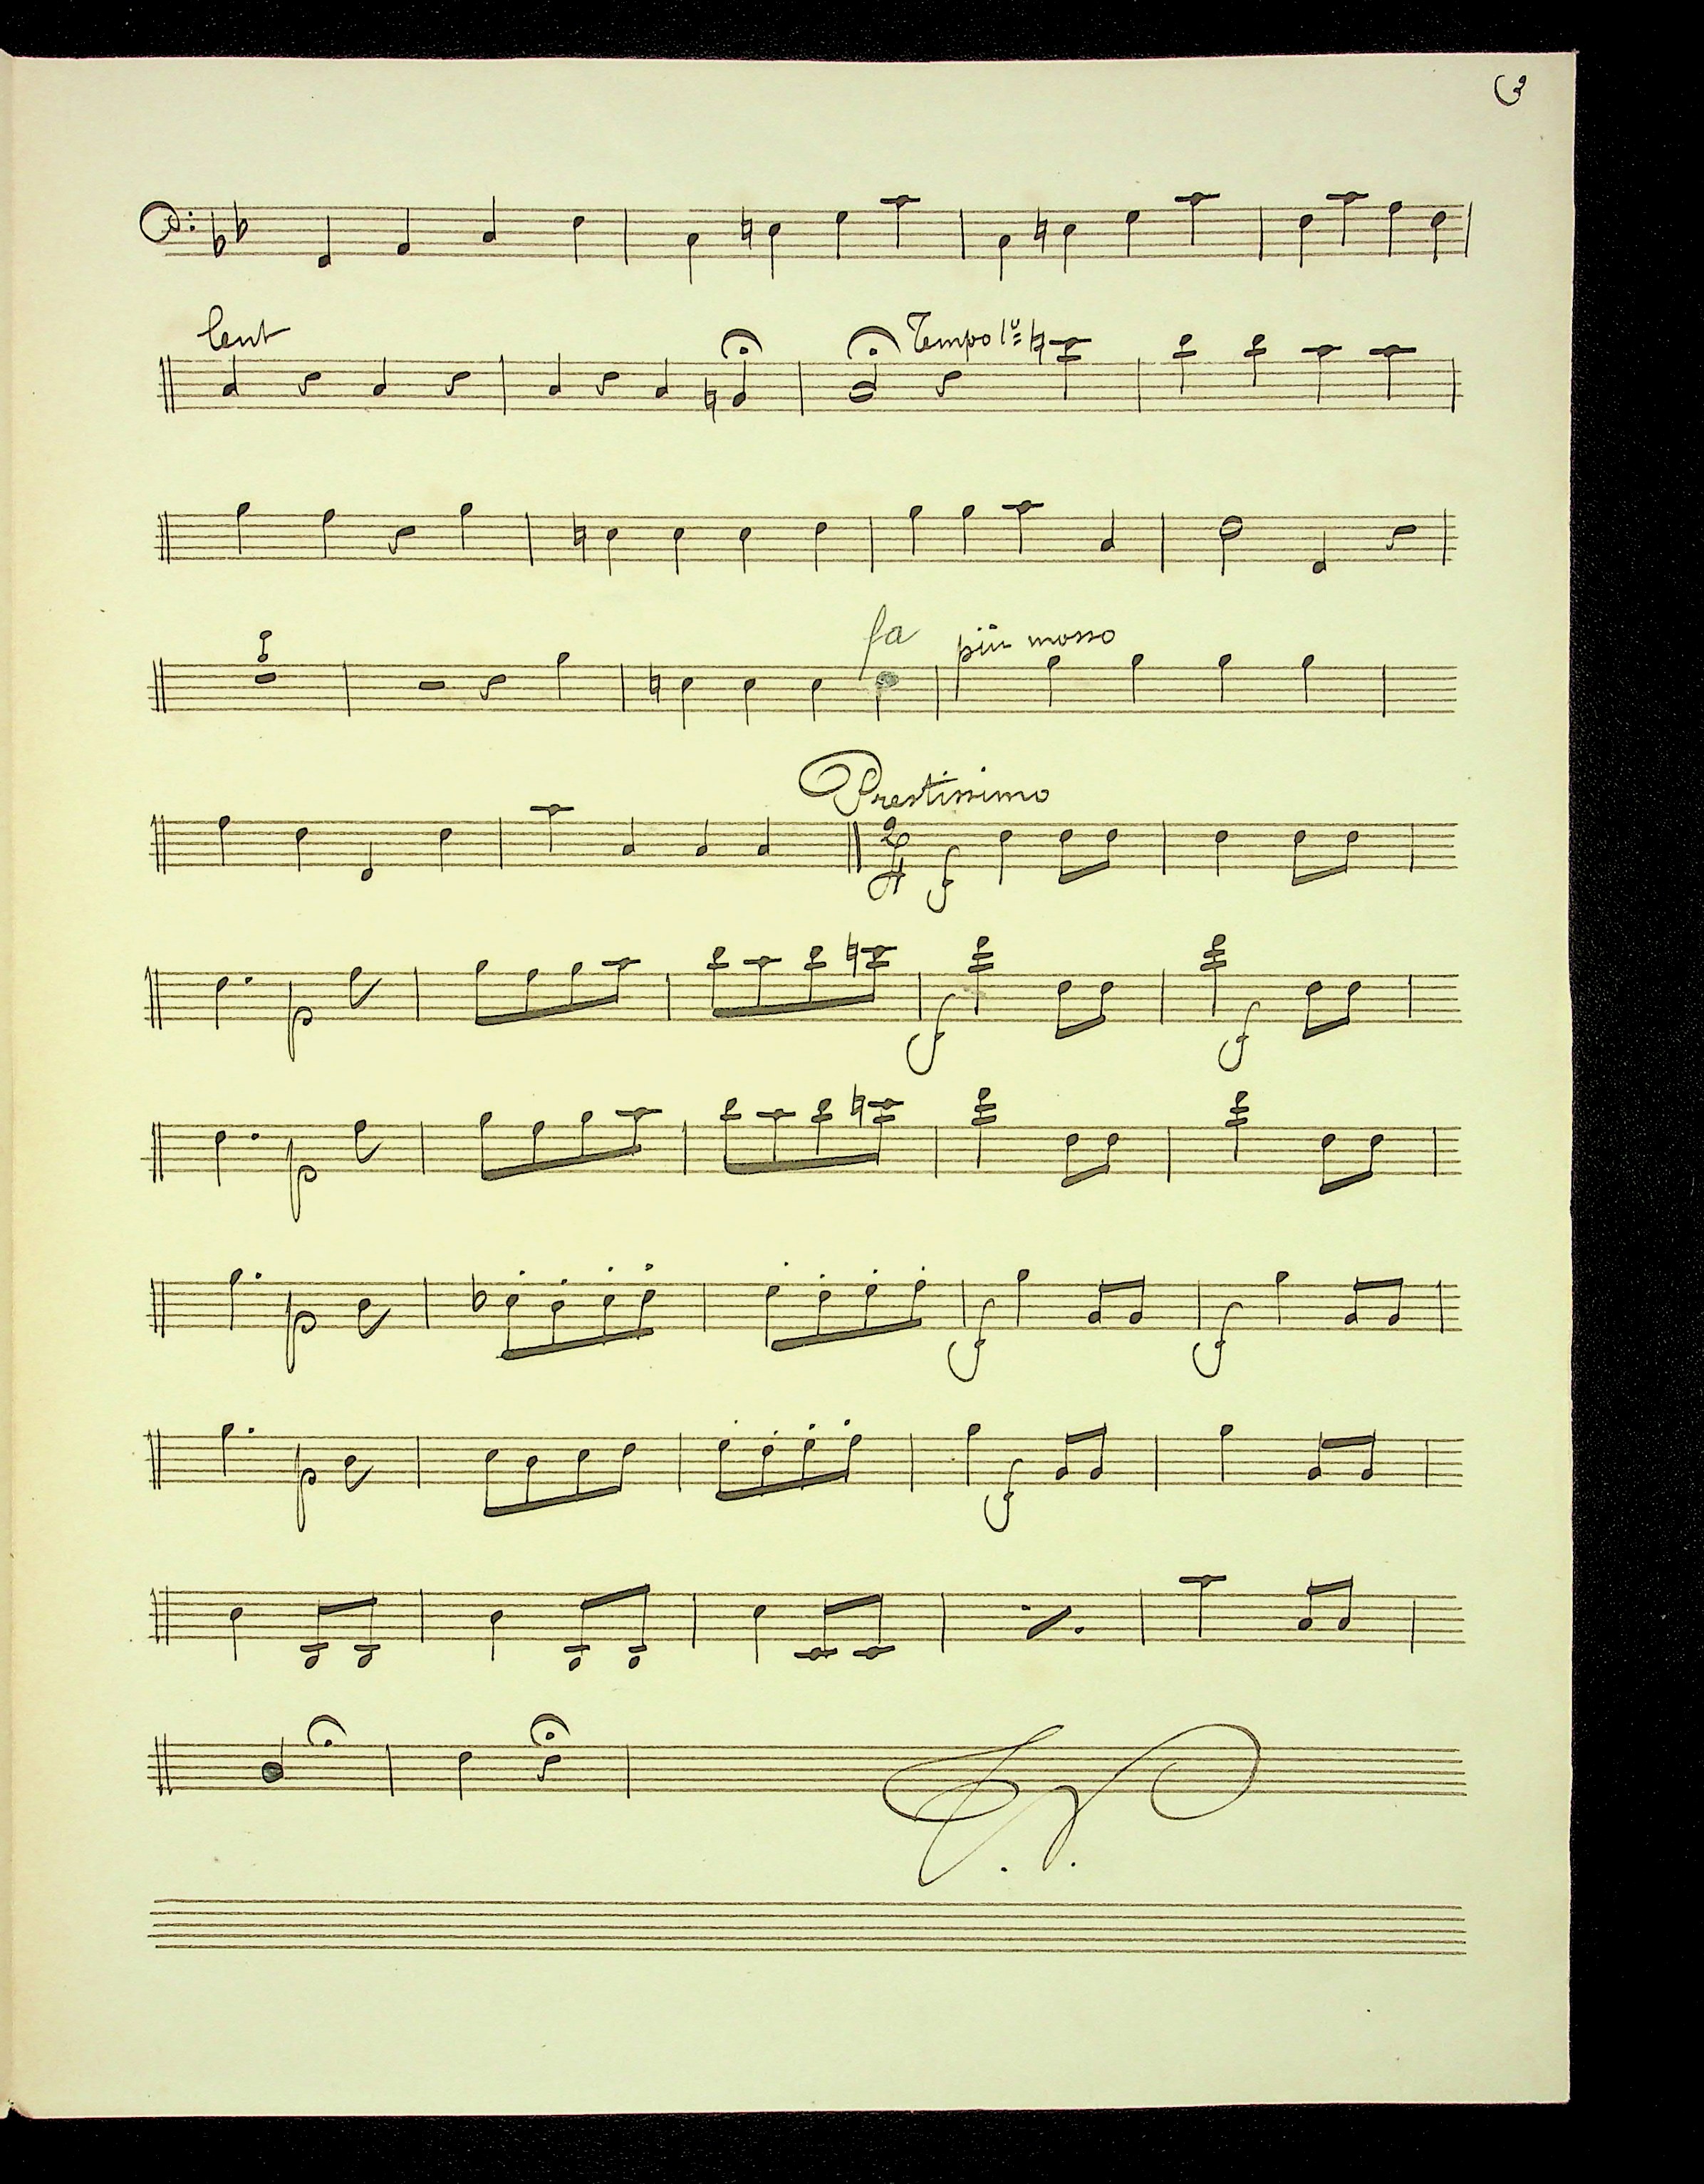 3
lent
Tempo 1º
1
fa
più mosso
Prestissimo
2
4
f
p
f
f
p
p
f
f
p
f